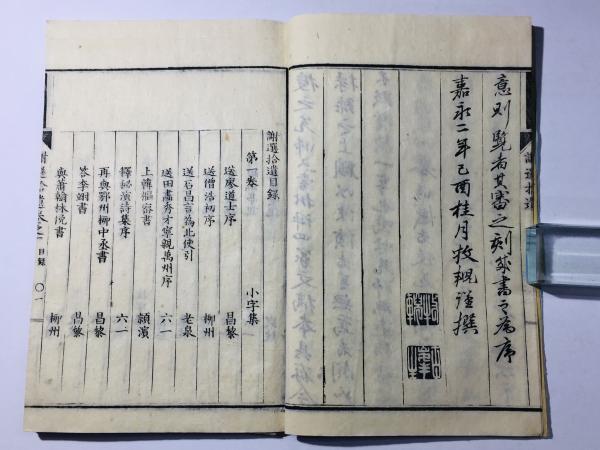 意則覽者其審之刻成書之為序
嘉永二年己酉桂月牧輗謹撰
謝選拾遺
謝選拾遺目録
第一巻 小字集
送廖道士序 昌黎
送僧浩初序 柳州
送石昌言為北使引 老泉
送田畫秀才寧親萬州序 六一
上韓樞密書 潁濱
釋秘演詩集序 六一
再與鄂州柳中丞書 昌黎
答李翊書 昌黎
與蕭翰林俛書 柳州
謝選拾遺巻之一 目録 〇一